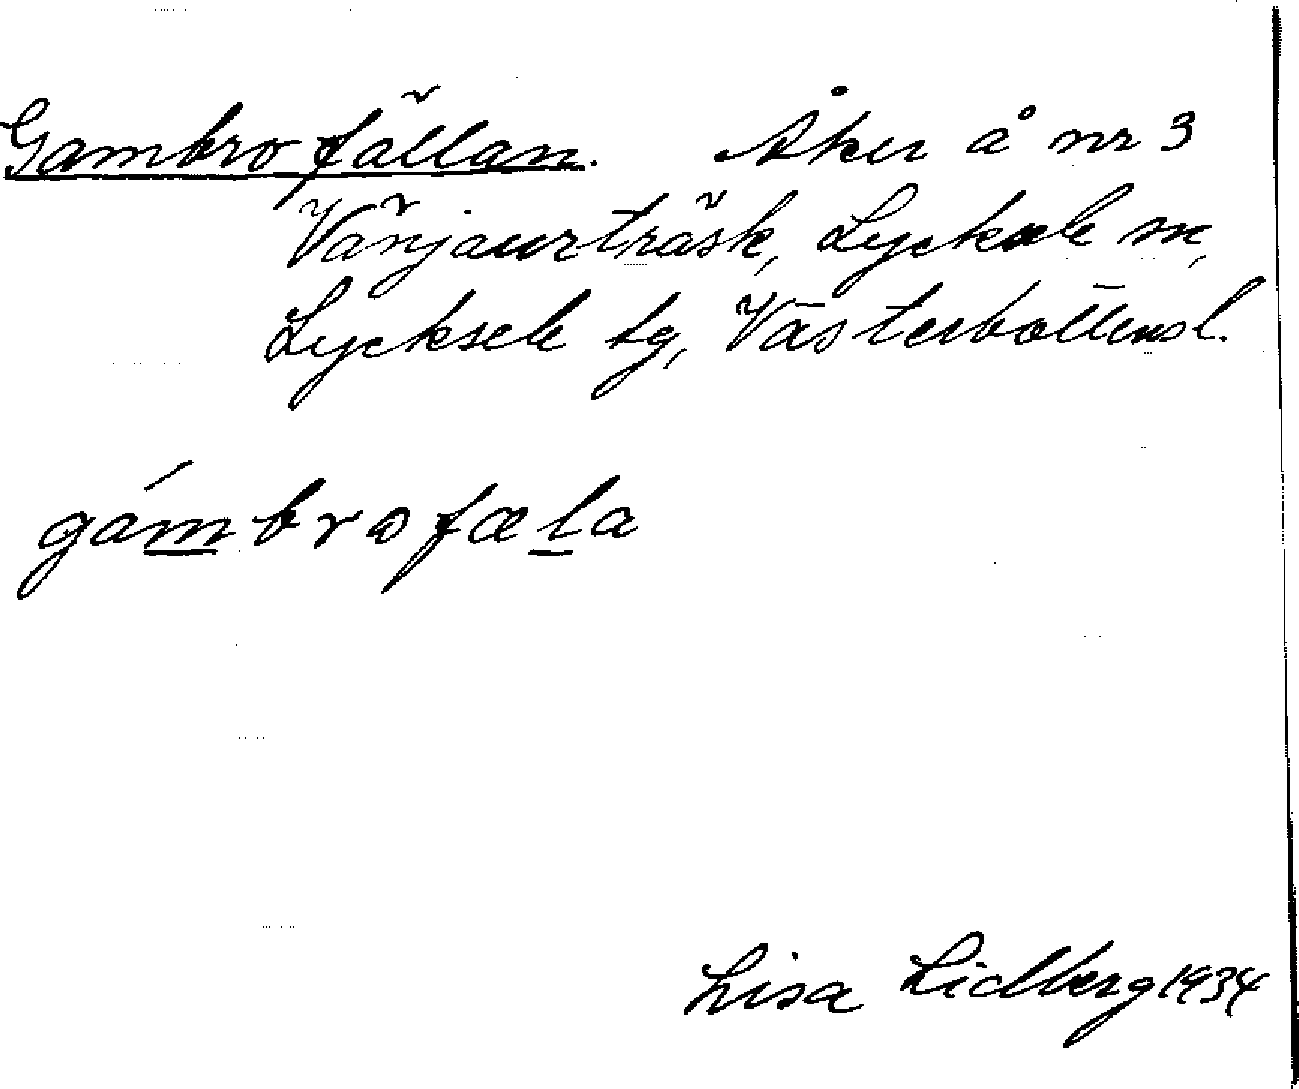 Gambrofällan. Åker å nr 3
Vänjaurträsk, Lycksele sn,
Lycksele tg, Västerbottensl.
gámbrofæla
Lisa Lidberg 1934